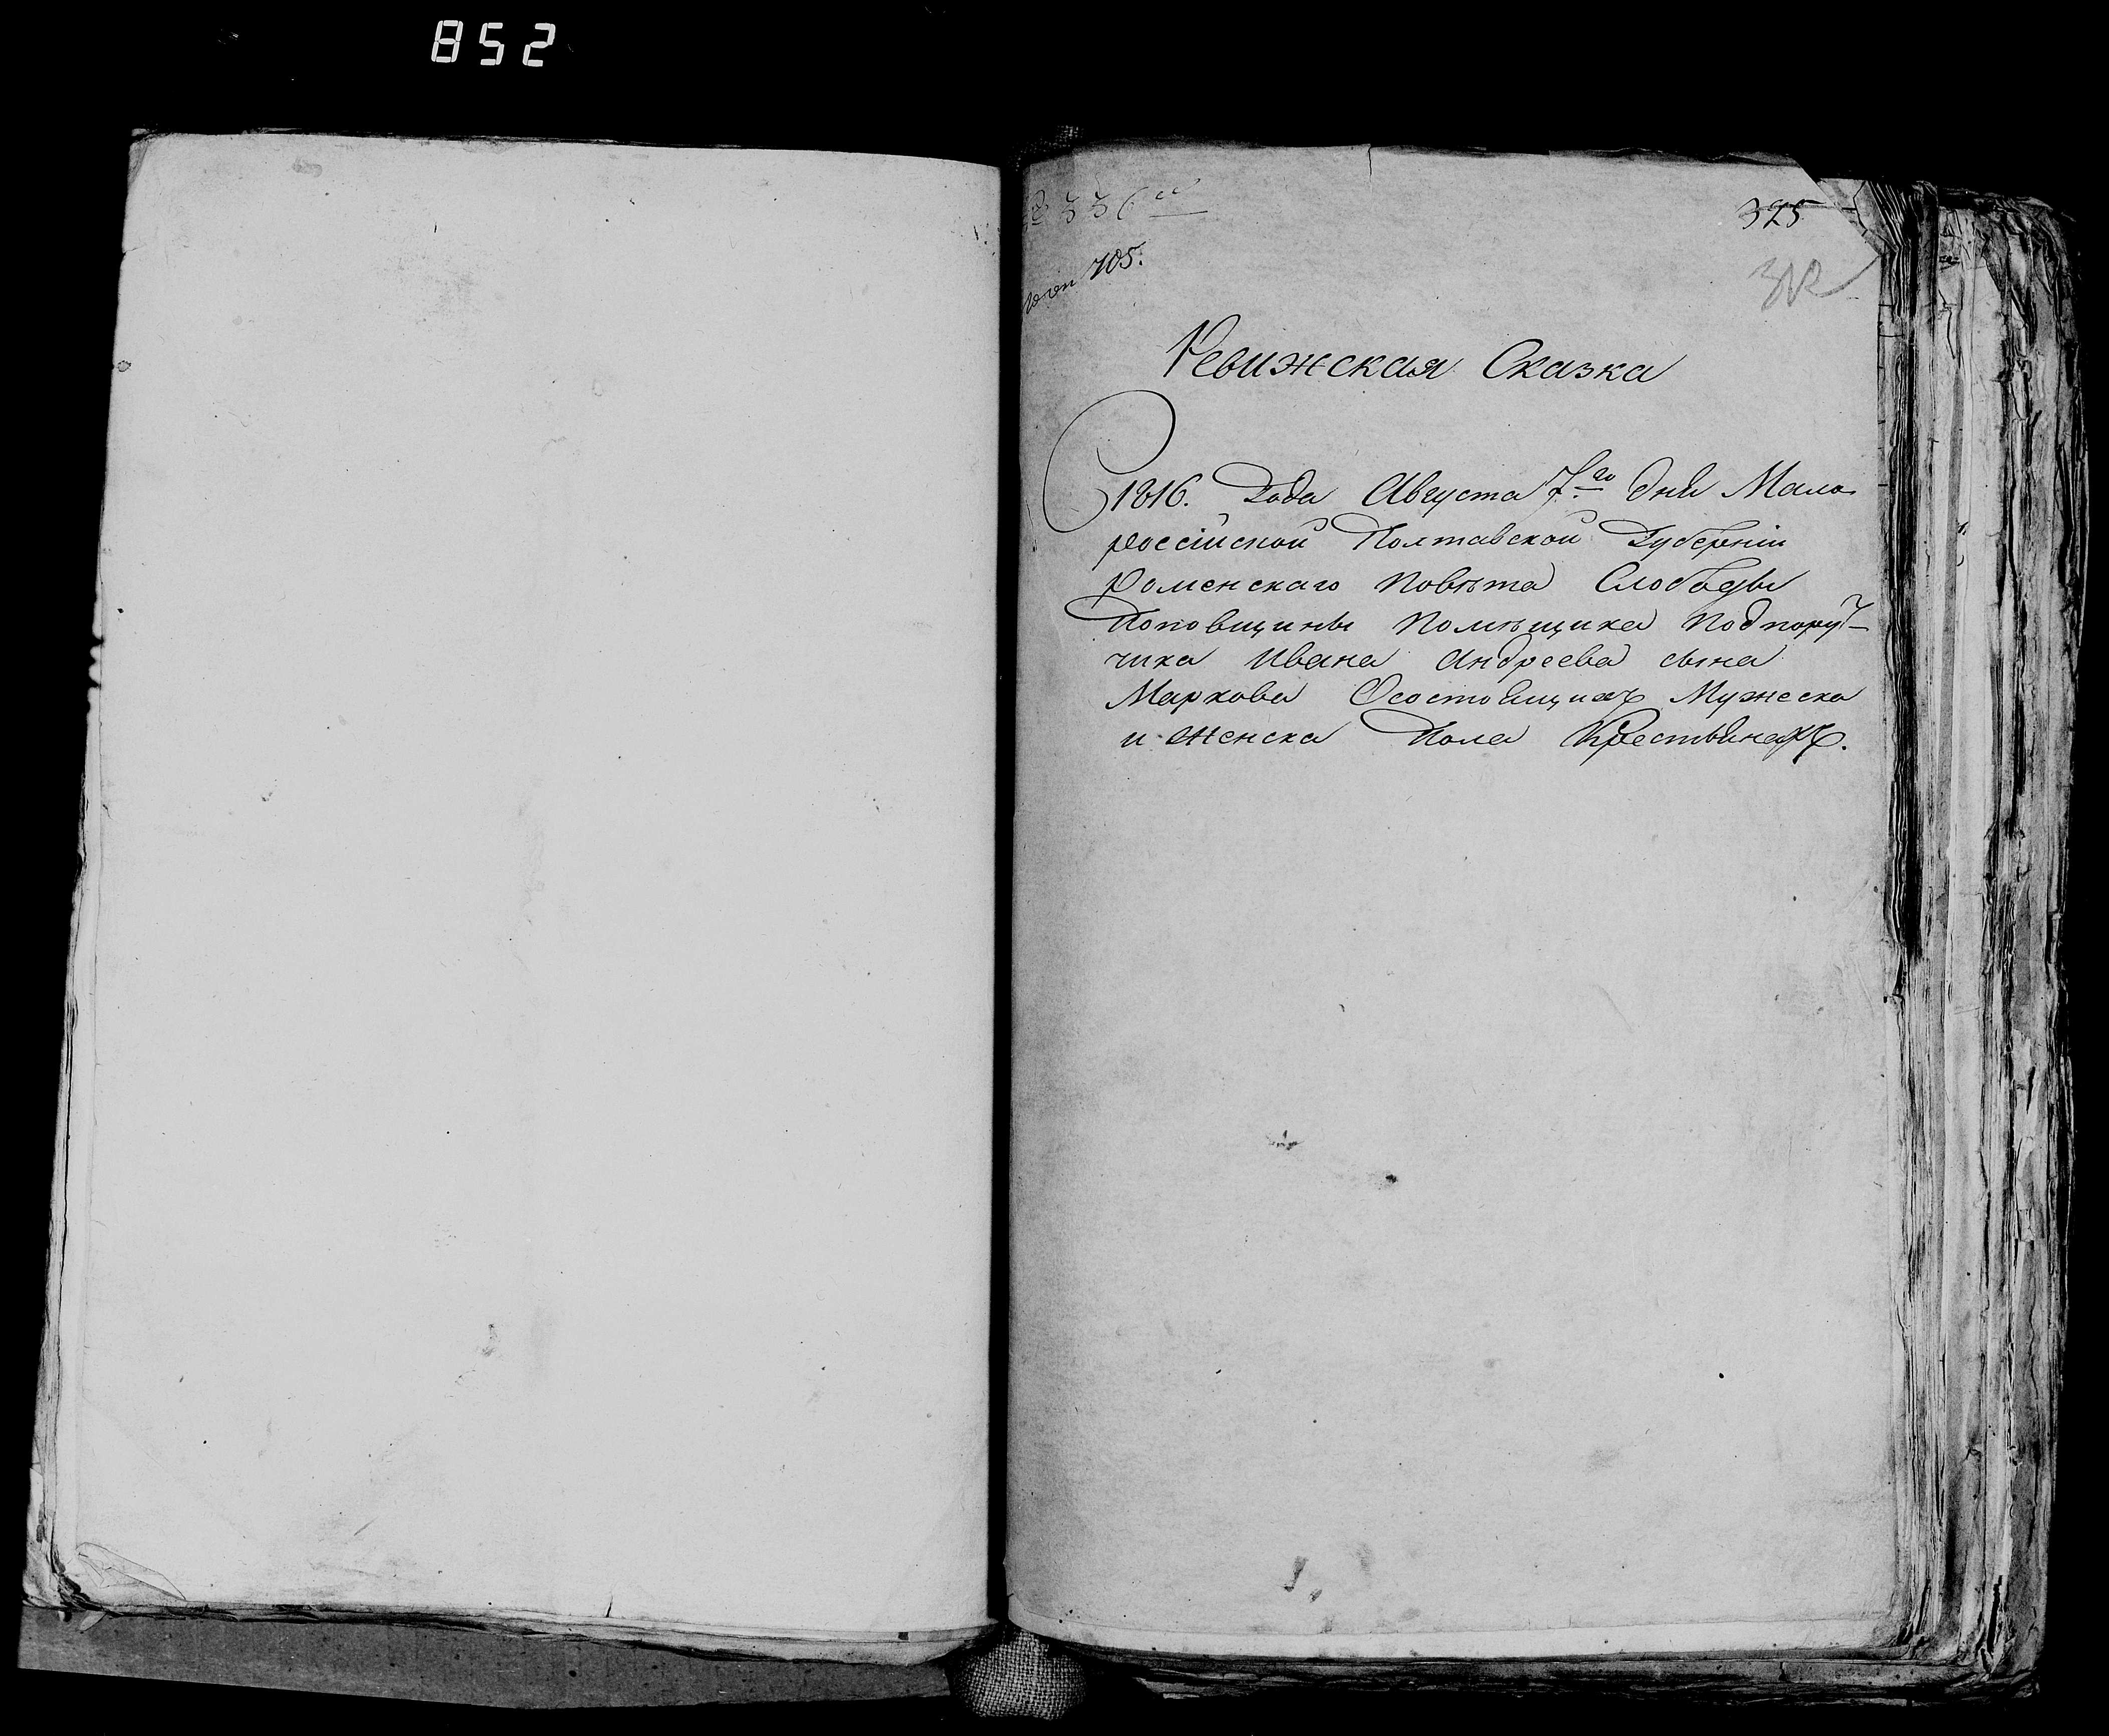 852
325
312
705.
Ревижская Сказка
1816. Года Августа 7.го дня Мало
россійской Полтавской Губерніи
Роменскаго Повѣта Слободы
Поповщины Помѣщика Подпору-
чика Ивана Андреева сына
Маркова Осостоящихъ Мужеска
и Женска Пола Крестьянахъ.